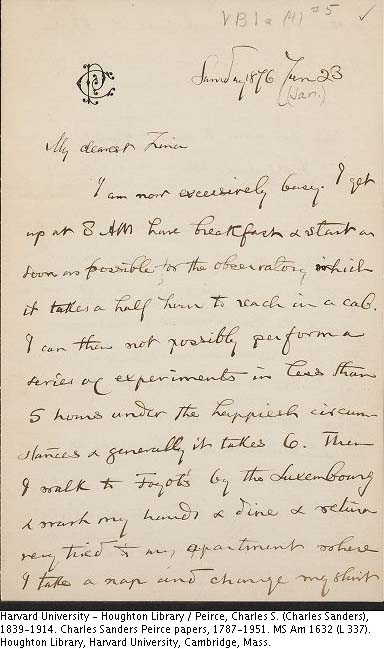 VB1a (4) #5
CP
Sunday 1876 Jan 23
(Jan.)
My dearest Zina
I am now excessively busy. I get
up at 8 AM have breakfast & start as
soon as possible for the observatory which
it takes a half hour to reach in a cab.
I can then not possibly perform a
series of experiments in less than
5 hours under the happiest circum-
stances & generally it takes 6. Then
I walk to Foyot's by the Luxembourg
& wash my hands & dine & return
very tried to my apartment where
I take a nap and change my shirt
Harvard University - Houghton Library / Peirce, Charles S. (Charles Sanders),
1839-1914. Charles Sanders Peirce papers, 1787-1951. MS Am 1632 (L 337).
Houghton Library, Harvard University, Cambridge, Mass.